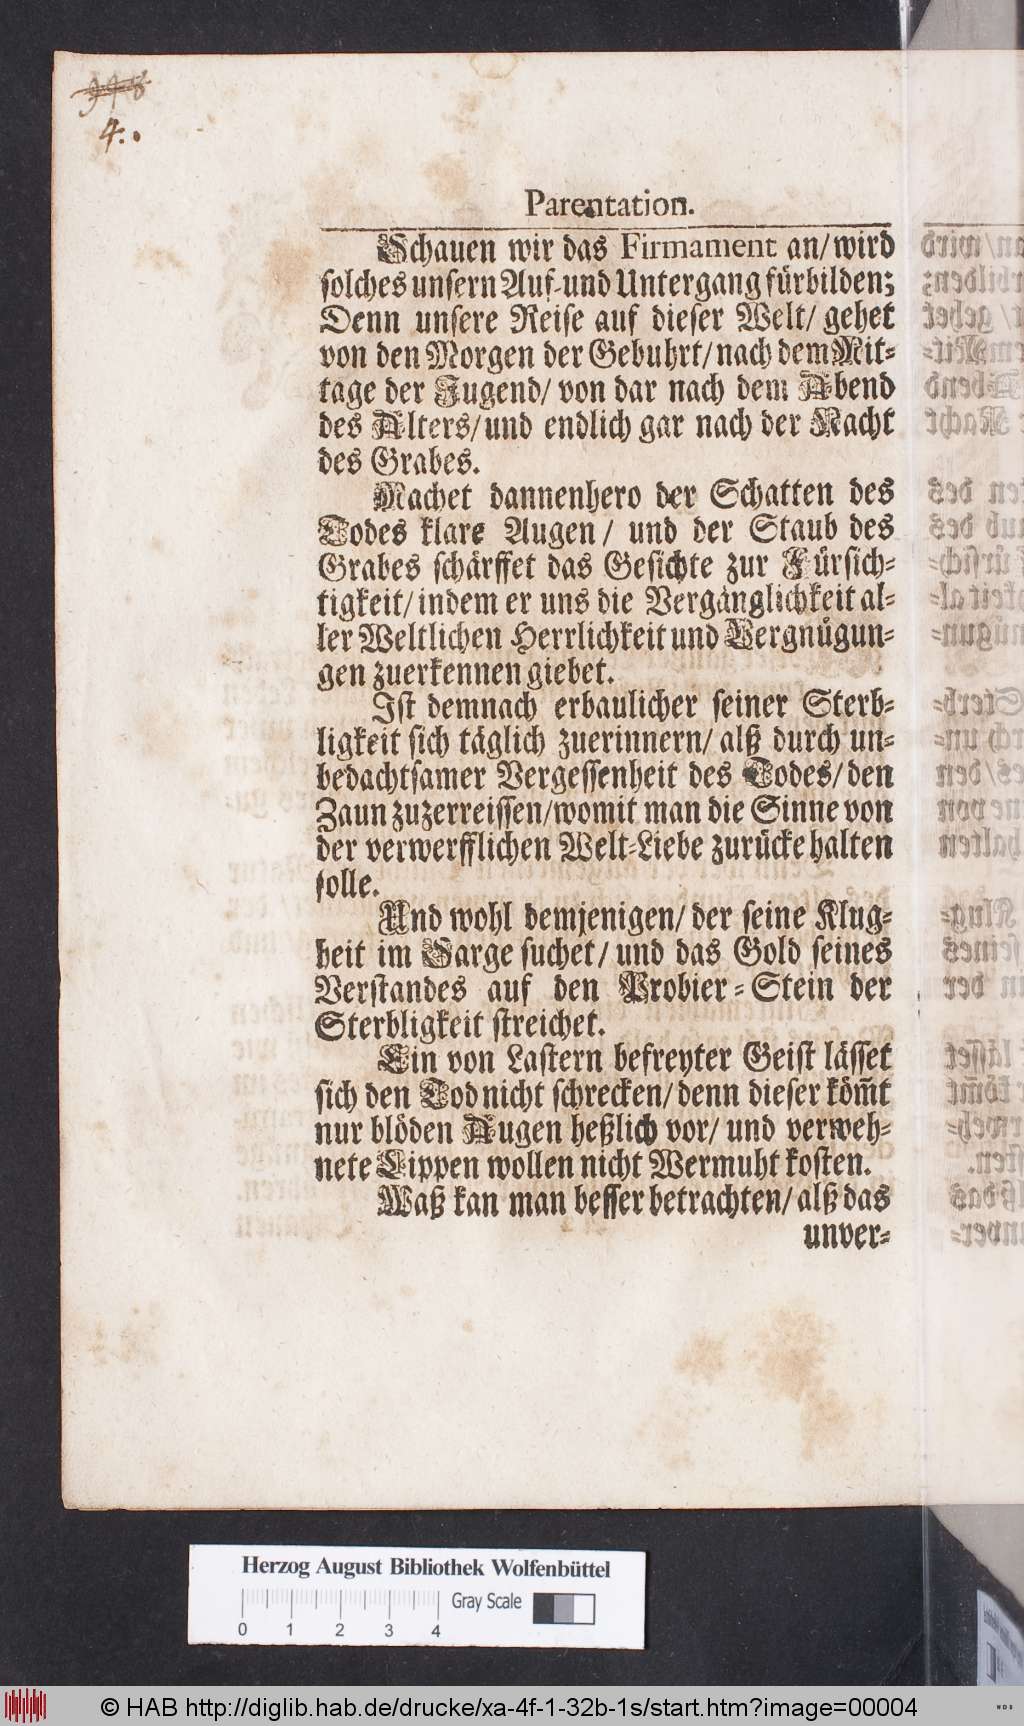 4.
Parentation.
Schauen wir das Firmament an/ wird
solches unsern Auf-und Untergang fürbilden;
Denn unsere Reise auf dieser Welt/ gehet
von den Morgen der Gebuhrt/ nach dem Mit-
tage der Jugend/ von dar nach dem Abend
des Alters/ und endlich gar nach der Nacht
des Grabes.
Machet dannenhero der Schatten des
Todes klare Augen/ und der Staub des
Grabes schärffet das Gesichte zur Fürsich-
tigkeit/ indem er uns die Vergänglichkeit al-
ler Weltlichen Herrlichkeit und Vergnügun-
gen zuerkennen giebet.
Ist demnach erbaulicher seiner Sterb-
ligkeit sich täglich zuerinnern/ alß durch un-
bedachtsamer Vergessenheit des Todes/ den
Zaun zuzerreissen/ womit man die Sinne von
der verwerfflichen Welt-Liebe zurücke halten
solle.
Und wohl demjenigen/ der seine Klug-
heit im Sarge suchet/ und das Gold seines
Verstandes auf den Probier-Stein der
Sterbligkeit streichet.
Ein von Lastern befreyter Geist lässet
sich den Tod nicht schrecken/ denn dieser köm̃t
nur blöden Augen heßlich vor/ und verweh-
nete Lippen wollen nicht Wermuht kosten.
Waß kan man besser betrachten/ alß das
unver-
Herzog August Bibliothek Wolfenbüttel
Gray Scale
0 1 2 3 4
© HAB http://diglib.hab.de/drucke/xa-4f-1-32b-1s/start.htm?image=00004